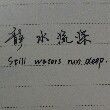 静水流深
Still waters run deep.